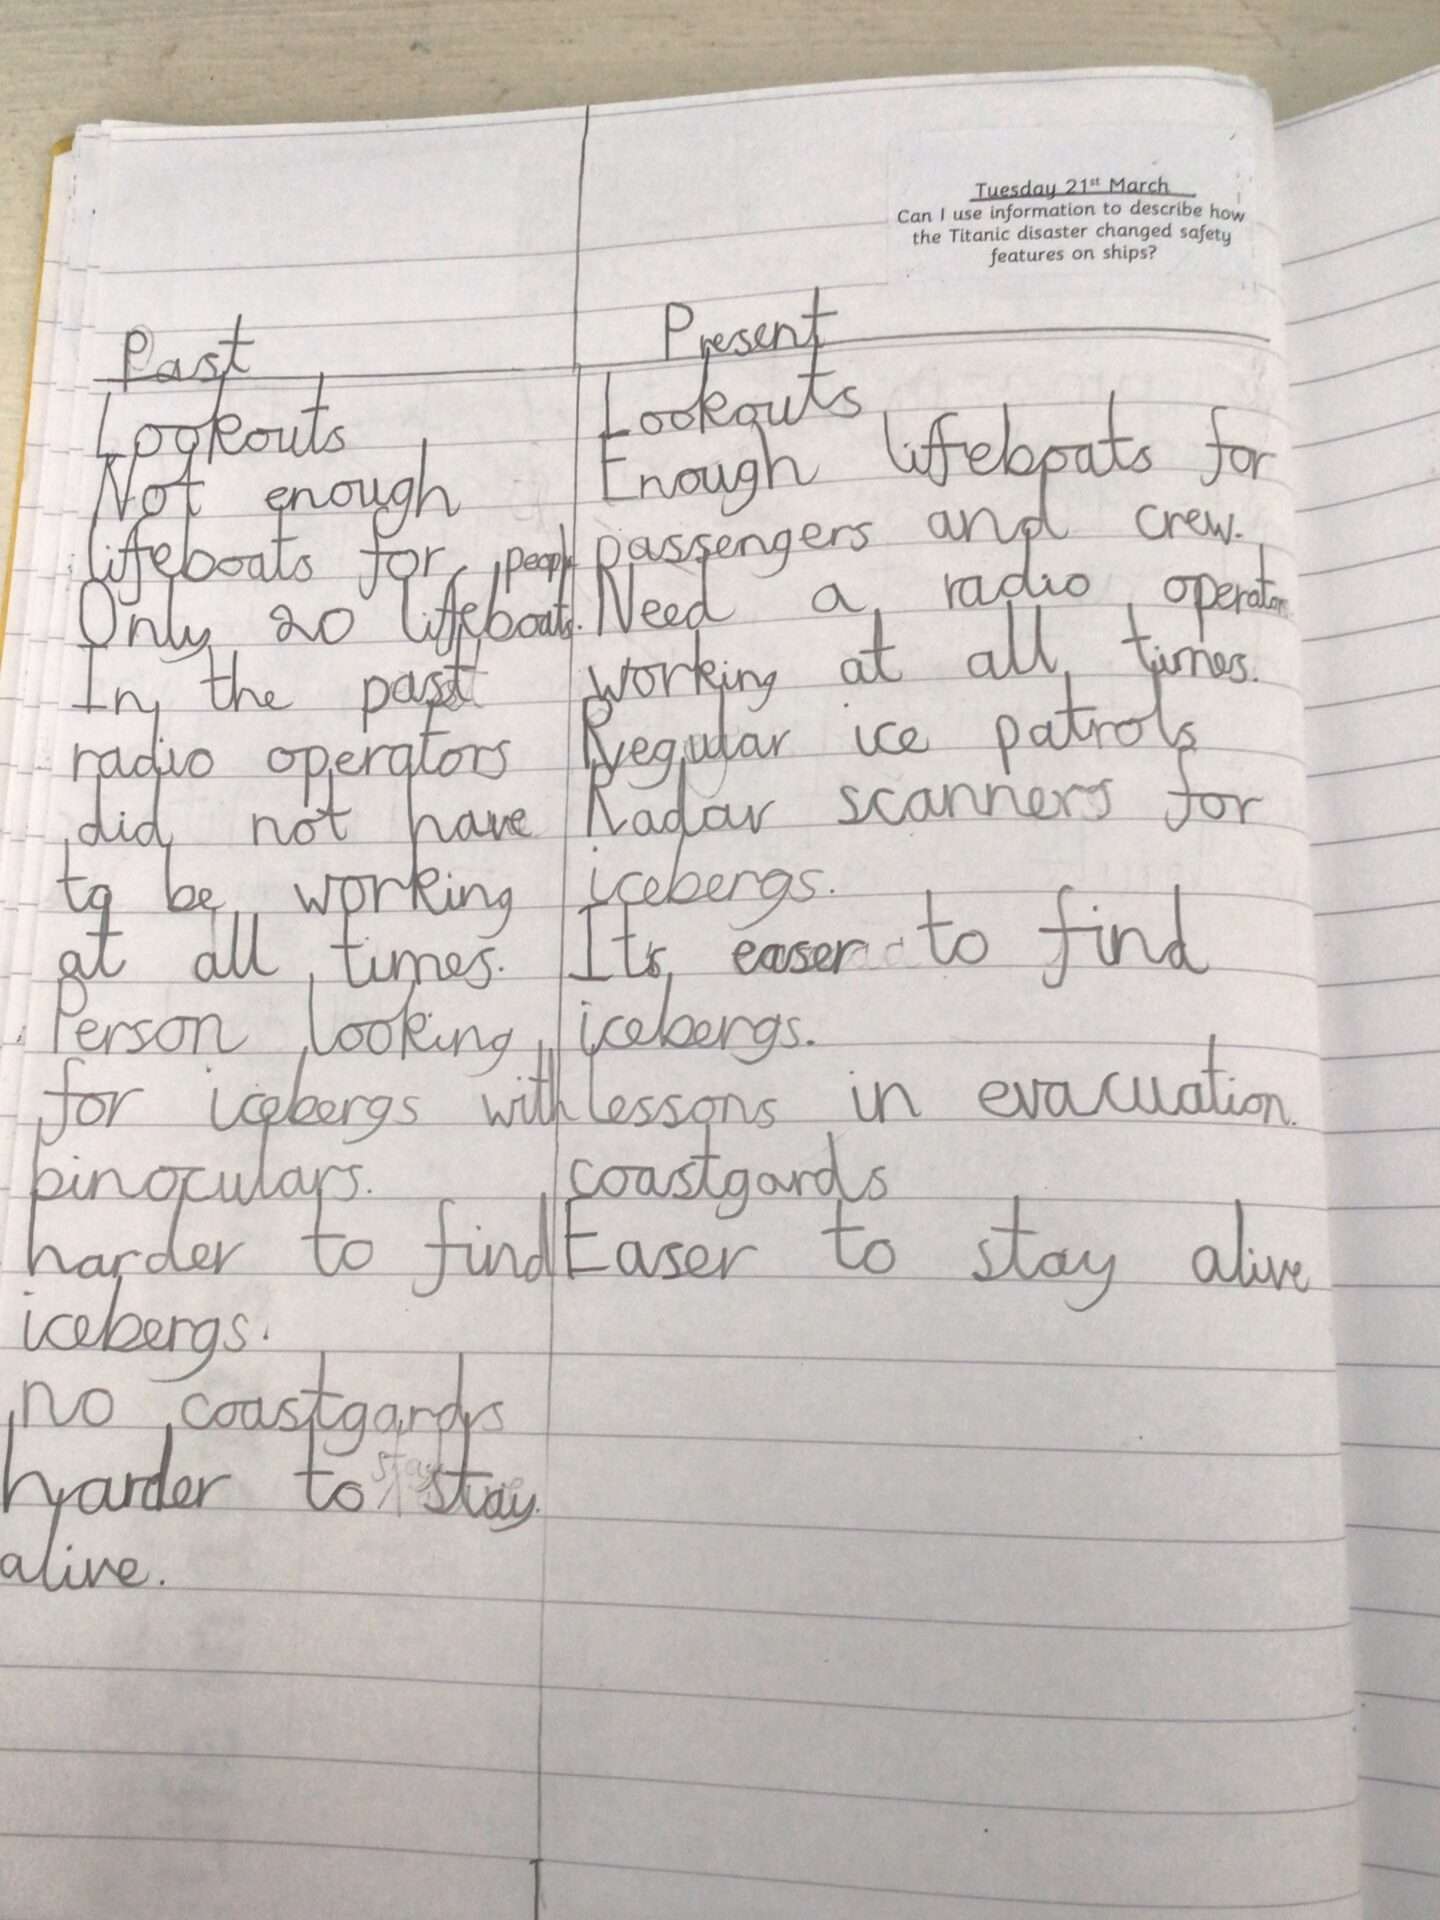 Tuesday 21st March
Can I use information to describe how
the Titanic disaster changed safety
features on ships?
Past
Lookouts
Not enough
lifeboats for people
Only 20 lifeboats.
In the past
radio operators
did not have
to be working
at all times.
Person looking
for icebergs with
binoculars.
harder to find
icebergs.
no coastgards
harder to stay
alive.
Present
Lookouts
Enough lifeboats for
passengers and crew.
Need a radio operator
working at all times.
Regular ice patrols
Radar scanners for
icebergs.
It's easer to find
icebergs.
lessons in evacuation.
coastgards
Easer to stay alive